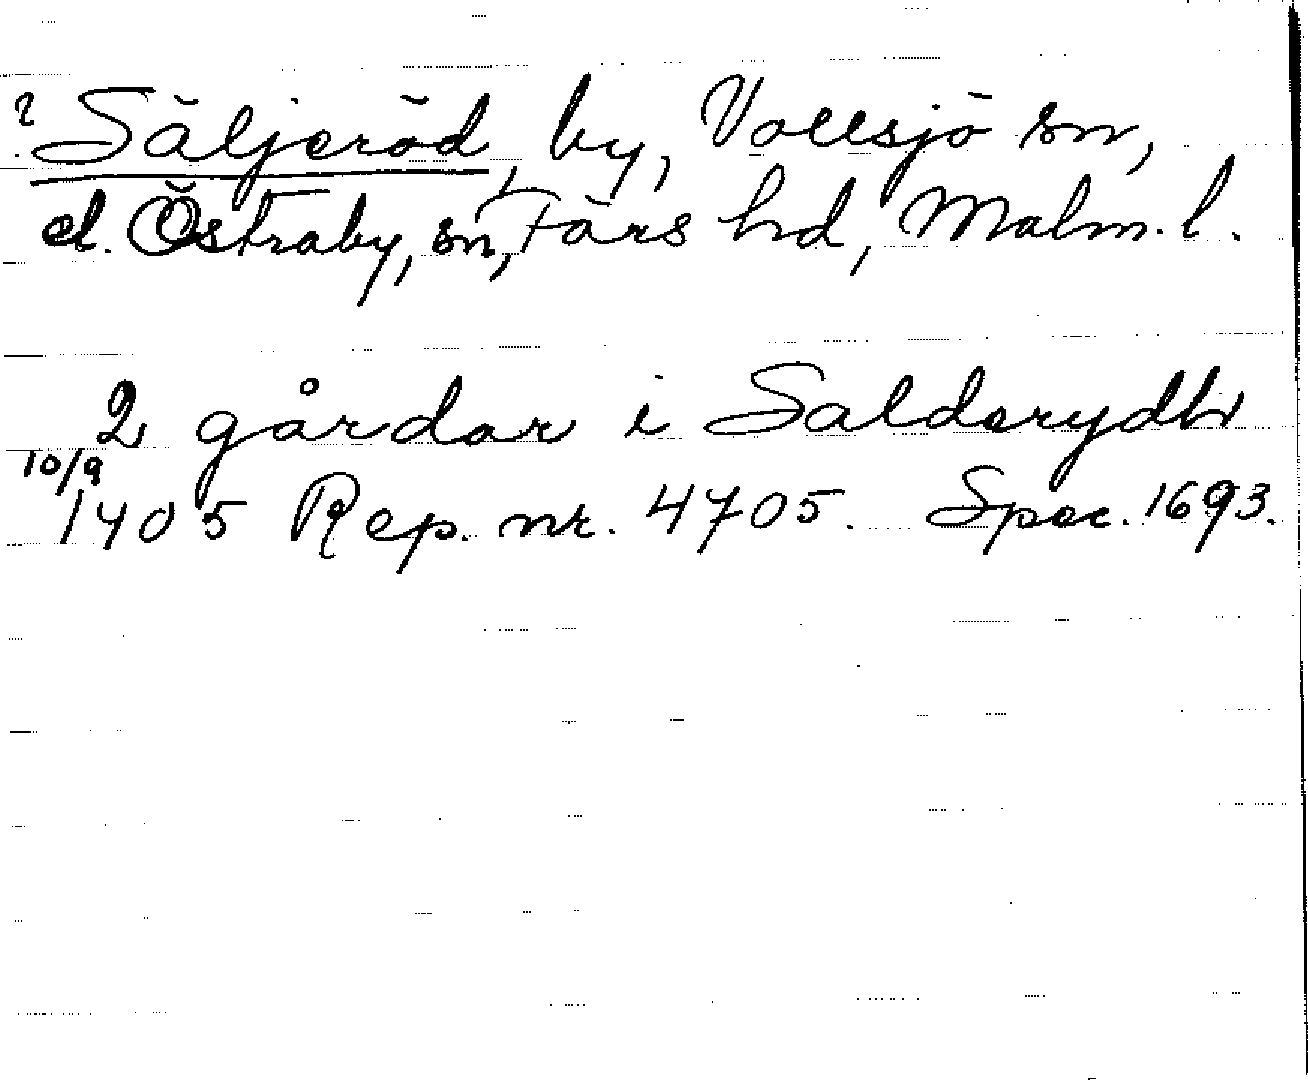 ? Säljeröd, by, Vollsjö sn,
el. Östraby, sn, Färs hd, Malm. l.
2 gårdar i Salderydh
10/9
1405 Rep. nr. 4705. Spec. 1693.